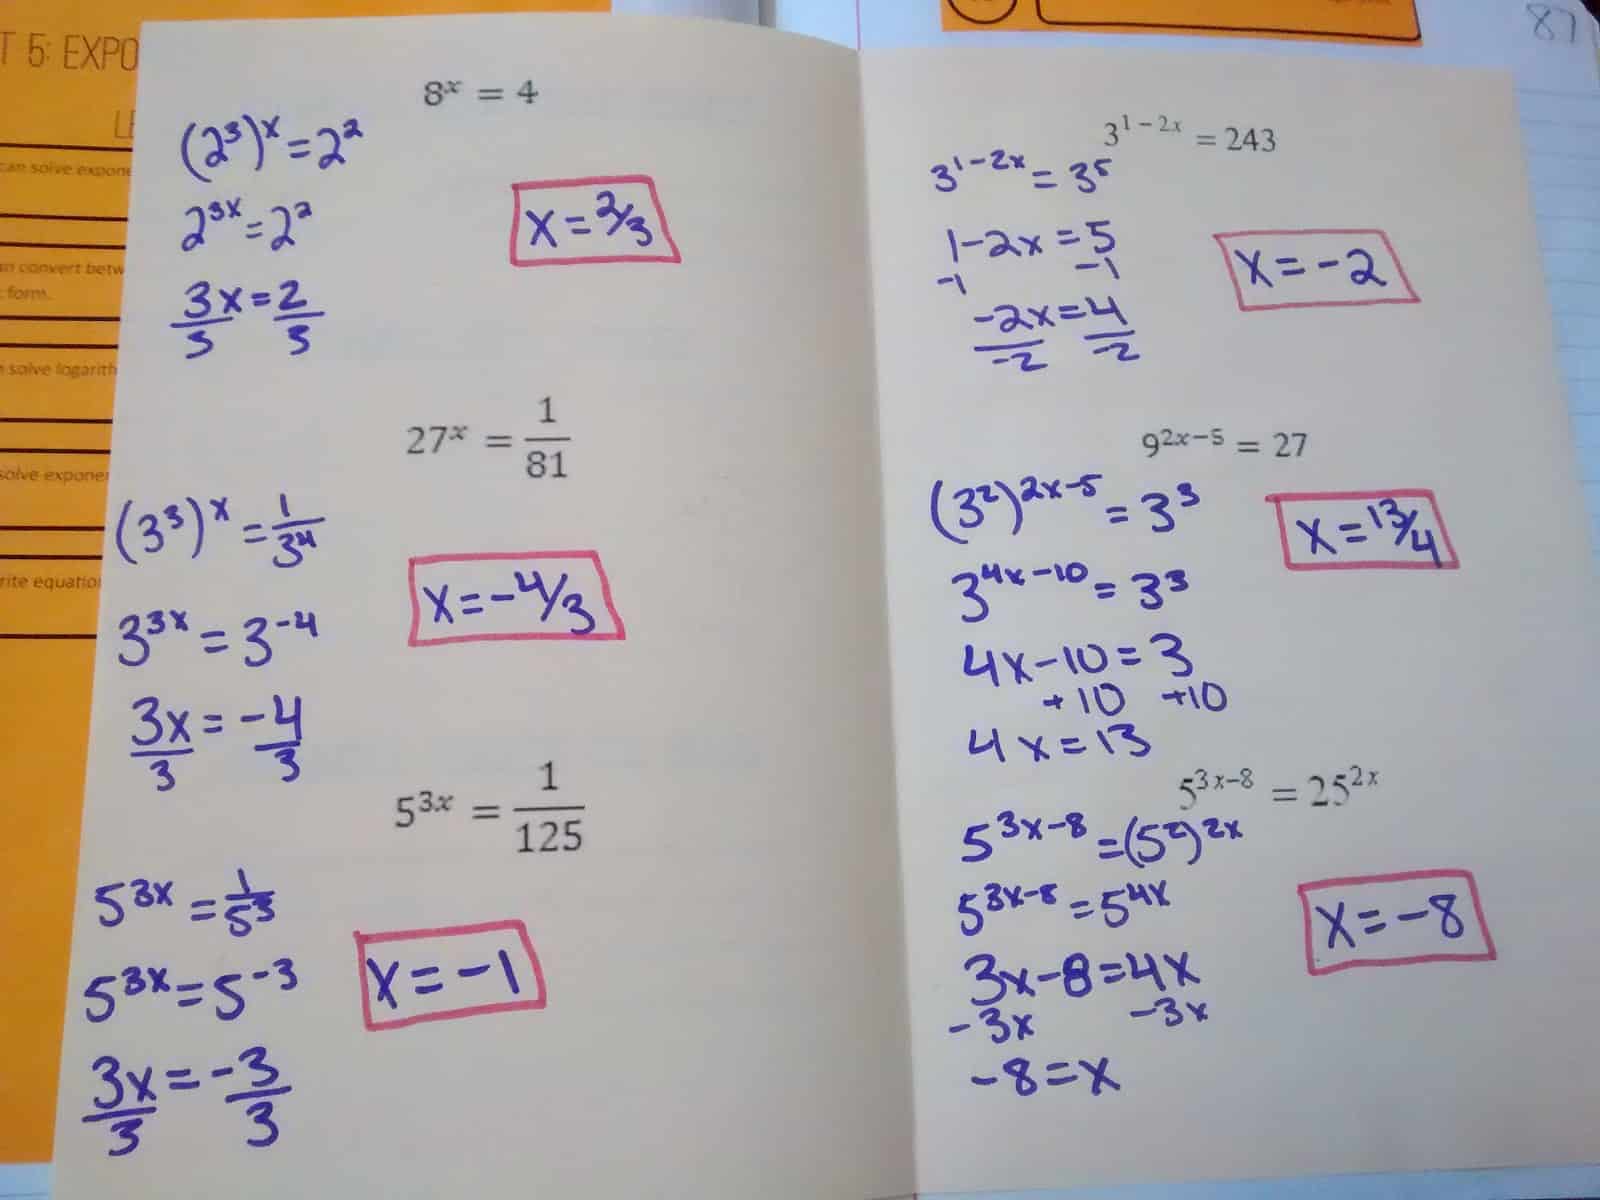 T 5: EXPO
LE
can solve expone
n convert betw
form.
solve logarith
solve exponen
rite equation
87
8ˣ = 4
(2³)ˣ = 2²
2³ˣ = 2²
3x = 2
3 3
x = 2/3
27ˣ = 1/81
(3³)ˣ = 1/3⁴
3³ˣ = 3⁻⁴
3x = -4
3 3
x = -4/3
5³ˣ = 1/125
5³ˣ = 1/5³
5³ˣ = 5⁻³
3x = -3
3 3
x = -1
3¹⁻²ˣ = 243
3¹⁻²ˣ = 3⁵
1-2x = 5
-1 -1
-2x = 4
-2 -2
x = -2
9²ˣ⁻⁵ = 27
(3²)²ˣ⁻⁵ = 3³
3⁴ˣ⁻¹⁰ = 3³
4x-10 = 3
+10 +10
4x = 13
x = 13/4
5³ˣ⁻⁸ = 25²ˣ
5³ˣ⁻⁸ = (5²)²ˣ
5³ˣ⁻⁸ = 5⁴ˣ
3x-8 = 4x
-3x -3x
-8 = x
x = -8